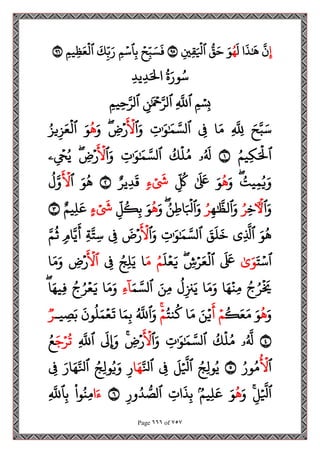 إِنَّ هَٰذَا لَهُوَ حَقُّ ٱلْيَقِينِ ۝٩٥ فَسَبِّحْ بِٱسْمِ رَبِّكَ ٱلْعَظِيمِ ۝٩٦
سُورَةُ الحَدِيدِ
بِسْمِ ٱللَّهِ ٱلرَّحْمَٰنِ ٱلرَّحِيمِ
سَبَّحَ لِلَّهِ مَا فِى ٱلسَّمَٰوَٰتِ وَٱلْأَرْضِ ۖ وَهُوَ ٱلْعَزِيزُ
ٱلْحَكِيمُ ۝١ لَهُۥ مُلْكُ ٱلسَّمَٰوَٰتِ وَٱلْأَرْضِ ۖ يُحْىِۦ
وَيُمِيتُ ۖ وَهُوَ عَلَىٰ كُلِّ شَىْءٍۢ قَدِيرٌ ۝٢ هُوَ ٱلْأَوَّلُ
وَٱلْءَاخِرُ وَٱلظَّٰهِرُ وَٱلْبَاطِنُ ۖ وَهُوَ بِكُلِّ شَىْءٍ عَلِيمٌ ۝٣
هُوَ ٱلَّذِى خَلَقَ ٱلسَّمَٰوَٰتِ وَٱلْأَرْضَ فِى سِتَّةِ أَيَّامٍۢ ثُمَّ
ٱسْتَوَىٰ عَلَى ٱلْعَرْشِ ۚ يَعْلَمُ مَا يَلِجُ فِى ٱلْأَرْضِ وَمَا
يَخْرُجُ مِنْهَا وَمَا يَنزِلُ مِنَ ٱلسَّمَآءِ وَمَا يَعْرُجُ فِيهَا ۖ
وَهُوَ مَعَكُمْ أَيْنَ مَا كُنتُمْ ۚ وَٱللَّهُ بِمَا تَعْمَلُونَ بَصِيرٌۭ
۝٤ لَّهُۥ مُلْكُ ٱلسَّمَٰوَٰتِ وَٱلْأَرْضِ ۚ وَإِلَى ٱللَّهِ تُرْجَعُ
ٱلْأُمُورُ ۝٥ يُولِجُ ٱلَّيْلَ فِى ٱلنَّهَارِ وَيُولِجُ ٱلنَّهَارَ فِى
ٱلَّيْلِ ۚ وَهُوَ عَلِيمٌۢ بِذَاتِ ٱلصُّدُورِ ۝٦ ءَامِنُوا۟ بِٱللَّهِ
Page ٦٦٦ of ٧٥٧